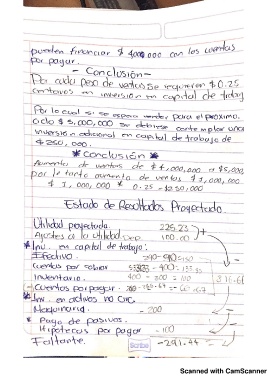 pueden financiar $ 400,000 con las cuentas
por pagar.
- Conclusión -
Por cada peso de ventas se requieren $ 0.25
centavos en inversión en capital de trabajo
Por lo cual si se espera vender para el próximo
ciclo $ 5,000,000 se deberá contemplar una
inversión adicional en capital de trabajo de
$ 250,000.
* Conclusión *
Aumento de ventas de $ 4,000,000 a $5,000,
por lo tanto aumento de ventas $ 1,000,000
$ 1,000,000 * 0.25 = $250,000
Estado de Resultados Proyectado.
Utilidad proyectada. 225.23
Ajustes a la utilidad Dep. 100.00
* Inv. en capital de trabajo:
Efectivo.
Cuentas por cobrar
Inventario. 400 - 300 = 100
Cuentas por pagar.
* Inv. en activos no circ.
Maquinaria. - 200
* Pago de pasivos.
Hipotecas por pagar - 100
Faltante. - 291.44
Scribe
Scanned with CamScanner